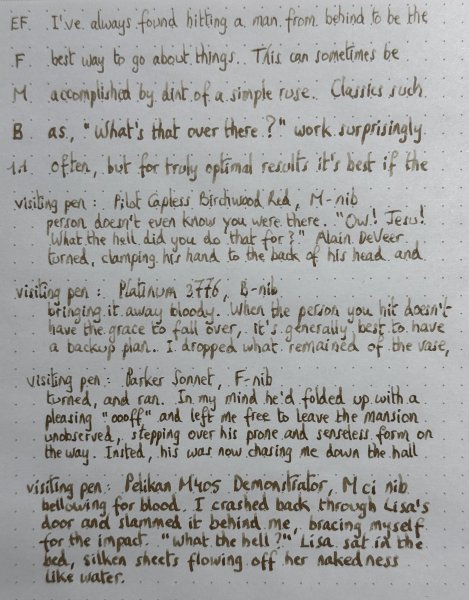 EF. I've always found hitting a man from behind to be the
F best way to go about things. This can sometimes be
M accomplished by dint of a simple ruse. Classics such
B as, "What's that over there?" work surprisingly
1.1 often, but for truly optimal results it's best if the
visiting pen: Pilot Capless Birchwood Red, M-nib
person doesn't even know you were there. "Ow! Jesu!
What the hell did you do that for?" Alain DeVeer
torned, clamping his hand to the back of his head and
visiting pen: Platinum 3776, B-nib
bringing it away bloody. When the person you hit doesn't
have the grace to fall over, it's generally best to have
a backup plan. I dropped what remained of the vase,
visiting pen: Parker Sonnet, F-nib
turned, and ran. In my mind he'd folded up with a
pleasing "oooff" and left me free to leave the mansion
unobserved, stepping over his prone and senseless form on
the way. Insted, his was now chasing me down the hall
visiting pen: Pelikan M405 Demonstrator, M ci nib
bellowing for blood. I crashed back through Lisa's
door and slammed it behind me, bracing myself
for the impact. "What the hell?" Lisa sat in the
bed, silken sheets flowing off her nakedness
like water.